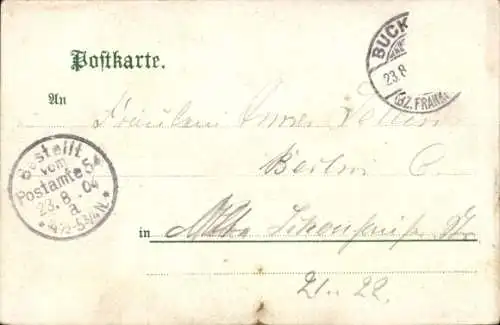 Postkarte.
BUCK
23.8
(BZ. FRANKF
An
Fräulein
Bestellt
vom
Postamte 54
23. 8. 04
a.
* 4½-5¾N. *
Berlin C.
in Alte Schönhauser Str
21-22.